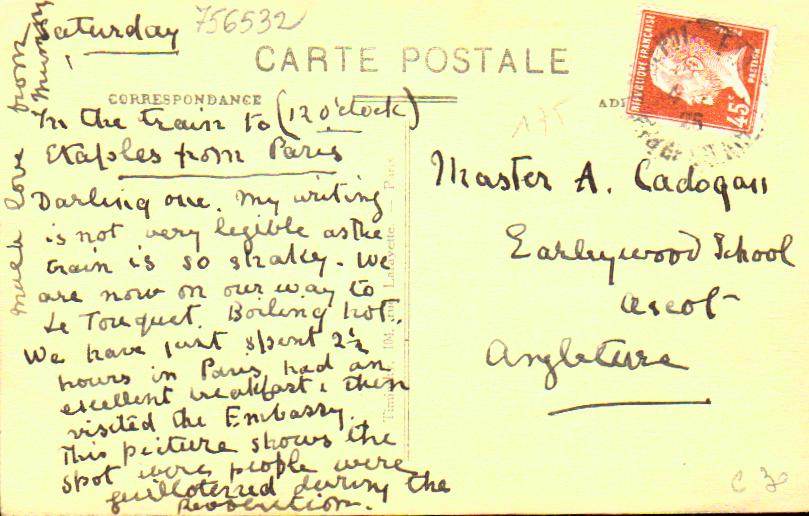 Saturday
756532
CARTE POSTALE
CORRESPONDANCE
In the train to (12 o'clock)
Etaples from Paris
Darling one. My writing
is not very legible as the
train is so shakey. We
are now on our way to
Le Touquet. Boiling hot.
We have just spent 2½
hours in Paris, had an
excellent breakfast & then
visited the Embassy.
This picture shows the
spot were people were
guilloterred during the
Revolution.
much love from
Mummy
Lafayette. Paris
175
RÉPUBLIQUE FRANÇAISE
PASTEUR
45c
Master A. Cadogan
Earleywood School
Ascot
Angleterre